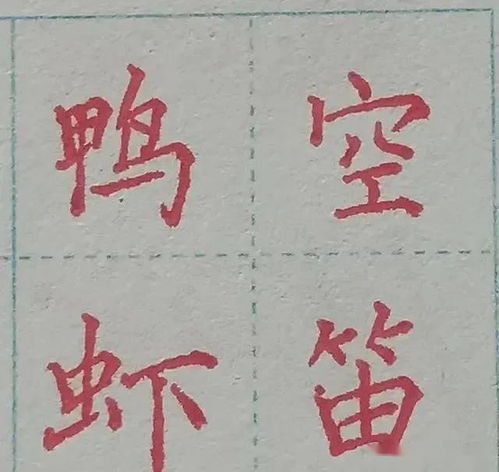 鸭空
虾笛